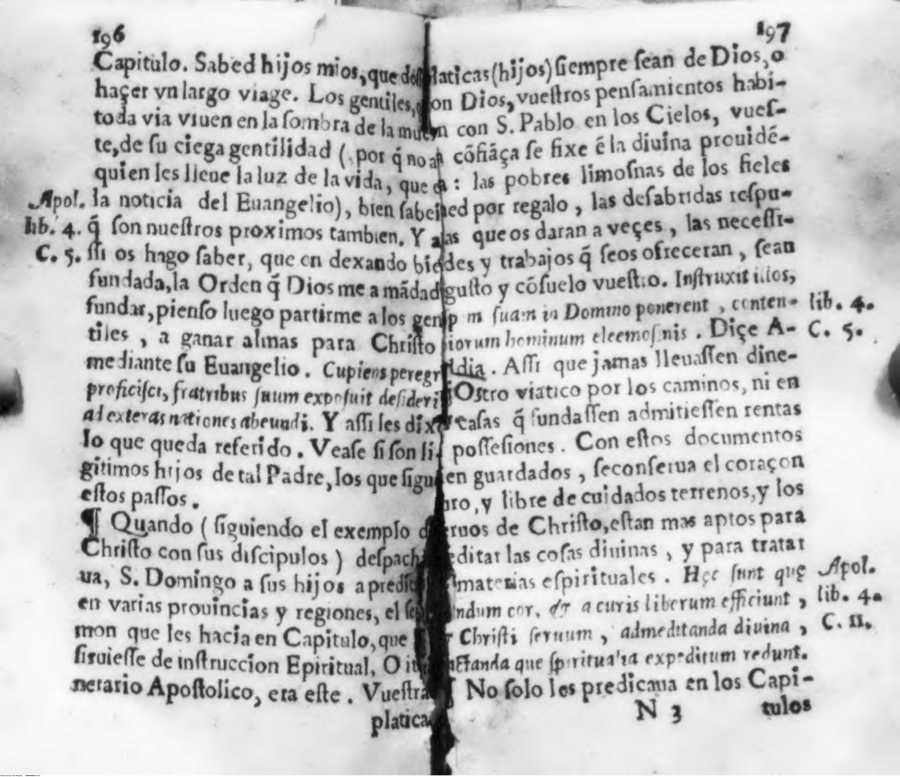 196
Capitulo. Sabed hijos mios, que de
haçer vn largo viage. Los gentiles,
toda via viuen en la sombra de la mue
te, de su ciega gentilidad (por q̃ no a
quien les lleue la luz de la vida, que
Apol. la noticia del Euangelio), bien sabei
lib. 4. q̃ son nuestros proximos tambien. Y a
C. 5. ssi os hago saber, que en dexando bie
fundada, la Orden q̃ Dios me a mãdad
fundar, pienso luego partirme a los gen
tiles, a ganar almas para Christo
mediante su Euangelio. Cupiens peregr
proficisci, fratribus suum exposuit desideri
ad exteras nationes abeundi. Y assi les dix
lo que queda referido. Vease si son li
gitimos hijos de tal Padre, los que sigu
estos passos.
¶ Quando (siguiendo el exemplo d
Christo con sus discipulos) despach
ua, S. Domingo a sus hijos a predic
en varias prouincias y regiones, el se
mon que les hacia en Capitulo, que
siruiesse de instruccion Epiritual, O it
nerario Apostolico, era este. Vuestra
platica
197
laticas (hijos) siempre sean de Dios, o
on Dios, vuestros pensamientos habi-
n con S. Pablo en los Cielos, vues-
cõfiãça se fixe ẽ la diuina prouidẽ-
a: las pobres limosnas de los fieles
ed por regalo, las desabridas respu-
as que os daran a veçes, las necessi-
des y trabajos q̃ seos ofreceran, sean
gusto y cõsuelo vuestro. Instruxit illos,
p m suam in Domino ponerent, conten- lib. 4.
iorum hominum eleemosnis. Diçe A- C. 5.
dia. Assi que jamas lleuassen dine-
Ostro viatico por los caminos, ni en
casas q̃ fundassen admitiessen rentas
possesiones. Con estos documentos
en guardados, seconserua el coraçon
uro, y libre de cuidados terrenos, y los
eruos de Christo, estan mas aptos para
editar las cosas diuinas, y para tratar
materias espirituales. Hęc sunt quę Apol.
ndum cor, a curis liberum efficiunt, lib. 4.
Christi seruum, admeditanda diuina, C. II.
ctanda que spiritualia expeditum redunt.
¶ No solo les predicaua en los Capi-
N 3 tulos